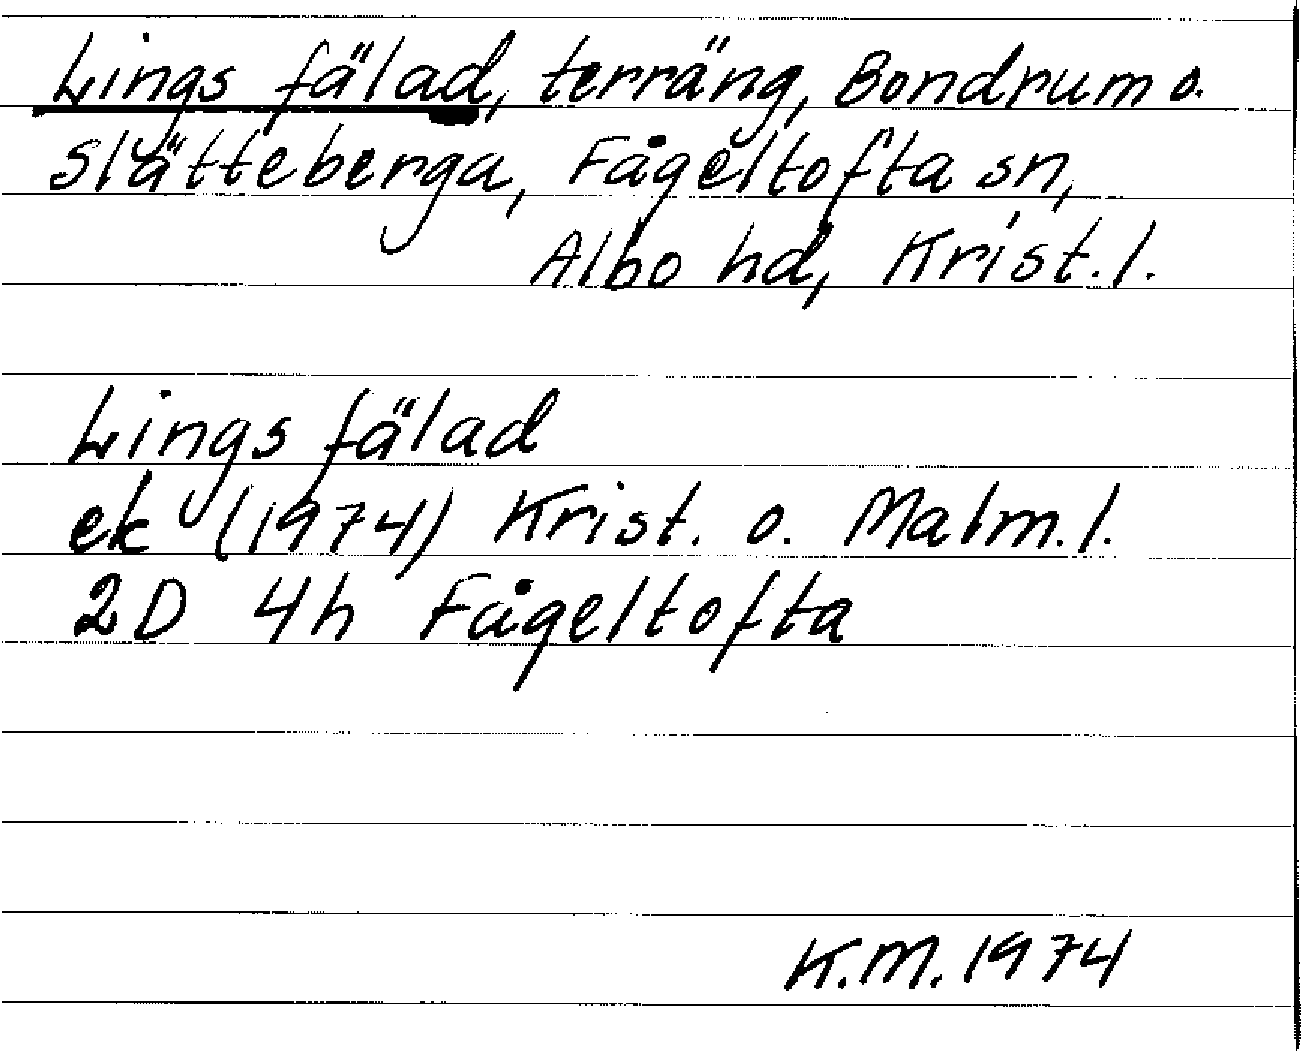 Lings fälad, terräng, Bondrum o.
Slätteberga, Fågeltofta sn,
Albo hd, Krist. l.
Lings fälad
ek (1974) Krist. o. Malm. l.
2D 4h Fågeltofta
K.M. 1974